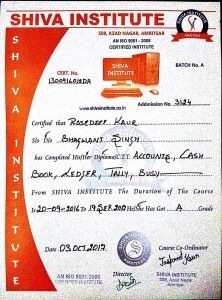 SHIVA INSTITUTE
508, AZAD NAGAR, AMRITSAR
AN ISO 9001 - 2008
CERTIFIED INSTITUTE
SHIVA INSTITUTE
BATCH No. A
CERT. No.
www.shivainstitute.co.in
Addmission No. 3124
Certified that ROSEDEEP KAUR
S/o D/o BHAGWANT SINGH
has Completed His/Her Diploma/C.I.T. ACCOUNTS, CASH
BOOK, LEDGER, TALLY, BUSY
From SHIVA INSTITUTE The Duration of The Course
Is 20-09-2016 To 19 SEP 2017 He/She Has Got A Grade
Date 03 OCT 2017
Course Co-Ordinator
Director
AN ISO 9001-2008
CERTIFIED INSTITUTE
SHIVA INSTITUTE
508, Azad Nagar
Amritsar
SHIVA INSTITUTE